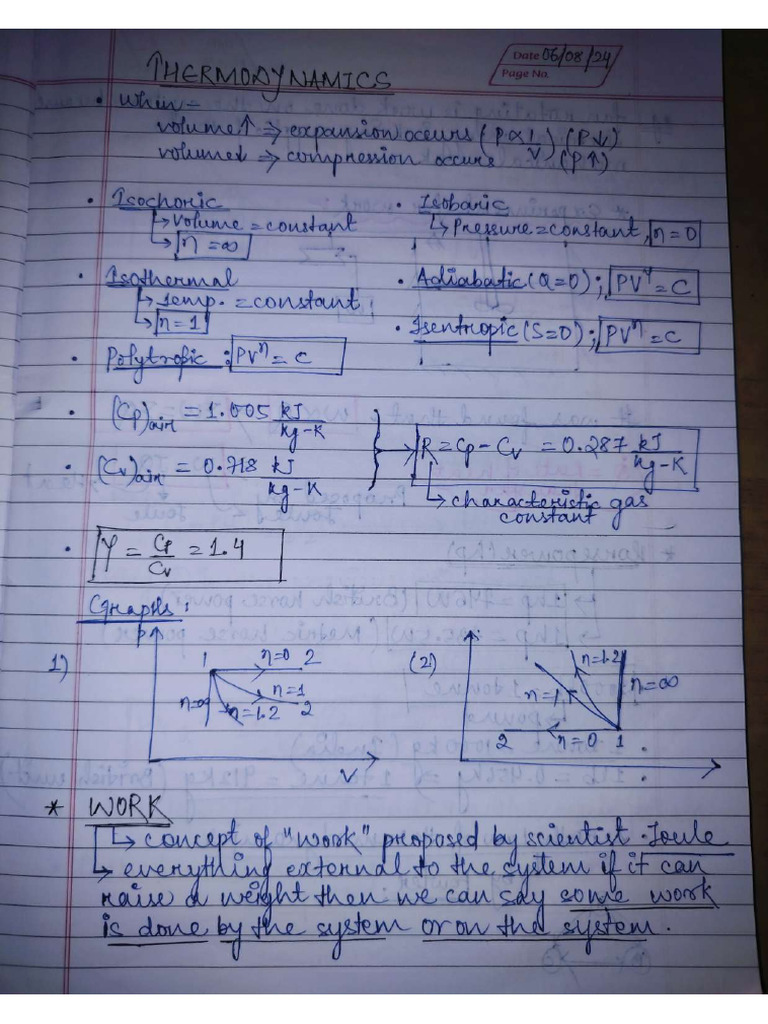 Date 06/08/24
Page No.
THERMODYNAMICS
• when –
volume↑ ⇒ expansion occurs (P∝1/V) (P↓)
volume↓ ⇒ compression occurs (P↑)
• Isochoric • Isobaric
↳ Volume = constant ↳ Pressure = constant, n=0
↳ n=∞
• Isothermal • Adiabatic (Q=0); PV^γ = C
↳ temp. = constant
↳ n=1 • Isentropic (S=0); PV^n = C
• Polytropic : PV^n = C
• (Cp)air = 1.005 kJ/kg-K
R = Cp – Cv = 0.287 kJ/kg-K
• (Cv)air = 0.718 kJ/kg-K
↳ characteristic gas
constant
• γ = Cp/Cv = 1.4
Graphs:
1) P 1 n=0 2
n=1
n=∞ n=1.2 2
V
(2) n=1.2
n=1 n=∞
2 n=0 1
* WORK
↳ concept of "work" proposed by scientist Joule
↳ everything external to the system if it can
raise a weight then we can say some work
is done by the system or on the system.